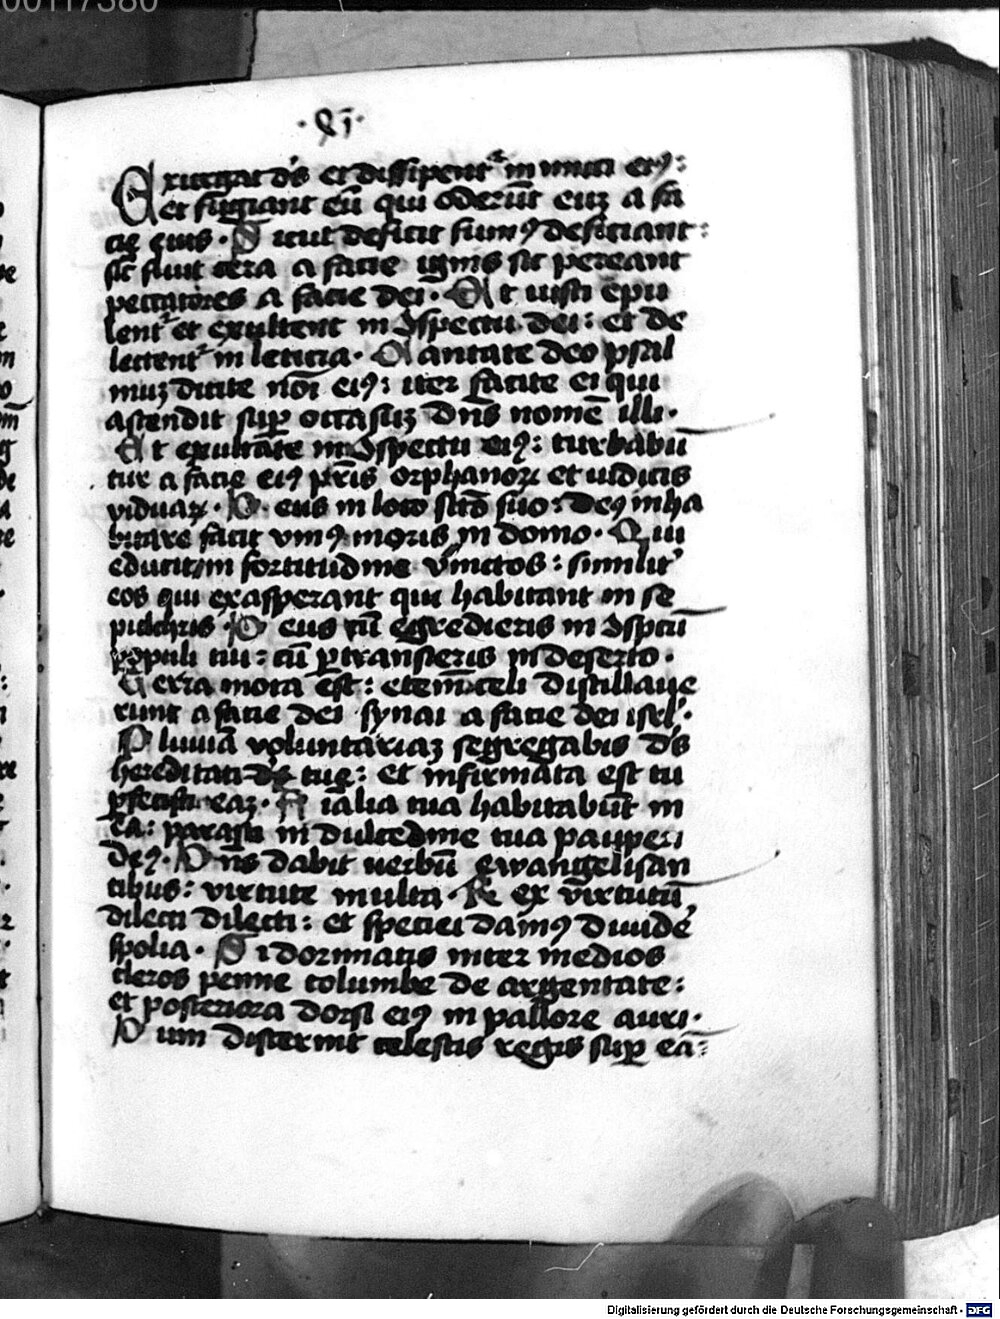 00117380
Exurgat ds̄ et dissipentᷣ inimici eiꝰ:
et fugiant eū qui oderūt euꝫ a fa
cie eius. Sicut deficit fumꝰ deficiant:
sic̄ fluit cera a facie ignis sic pereant
peccatores a facie dei. Et iusti epu
lentᷣ et exultent in ↄspectu dei: et de
lectentᷣ in leticia. Cantate deo psal
muꝫ dicite nōi eiꝰ: iter facite ei qui
ascendit suꝑ occasuꝫ dn̄s nomē illi.
Et exultate in ↄspectu eiꝰ: turbabū
tur a facie eiꝰ pr̄is orphanoꝝ et iudicis
viduaꝝ. Deus in loco sc̄o suo: deꝰ inha
bitare facit vniꝰ moris in domo. Qui
educit in fortitudine vinctos: similit᾽
eos qui exasperant qui habitant in se
pulchris. Deus cū egredieris in ↄspc̄u
populi tui: cū ꝑtransieris in deserto.
Terra mota est: etem̄ celi distillaue
runt a facie dei synai a facie dei isrl᾽.
Pluuiā voluntariaꝫ segregabis ds̄
hereditati tue: et infirmata est tu
ꝑfecisti eaꝫ. Aialia tua habitabūt in
ea: parasti in dulcedine tua pauperi
deꝰ. Dn̄s dabit uerbū ewangelisan
tibus: virtute multa. Rex virtutū
dilecti dilecti: et speciei domꝰ diuide᾽
spolia. Si dormiatis inter medios
cleros penne columbe de argentate:
et posteriora dorsi eiꝰ in pallore auri.
Dum discernit celestis reges suꝑ eā:
Digitalisierung gefördert durch die Deutsche Forschungsgemeinschaft - DFG